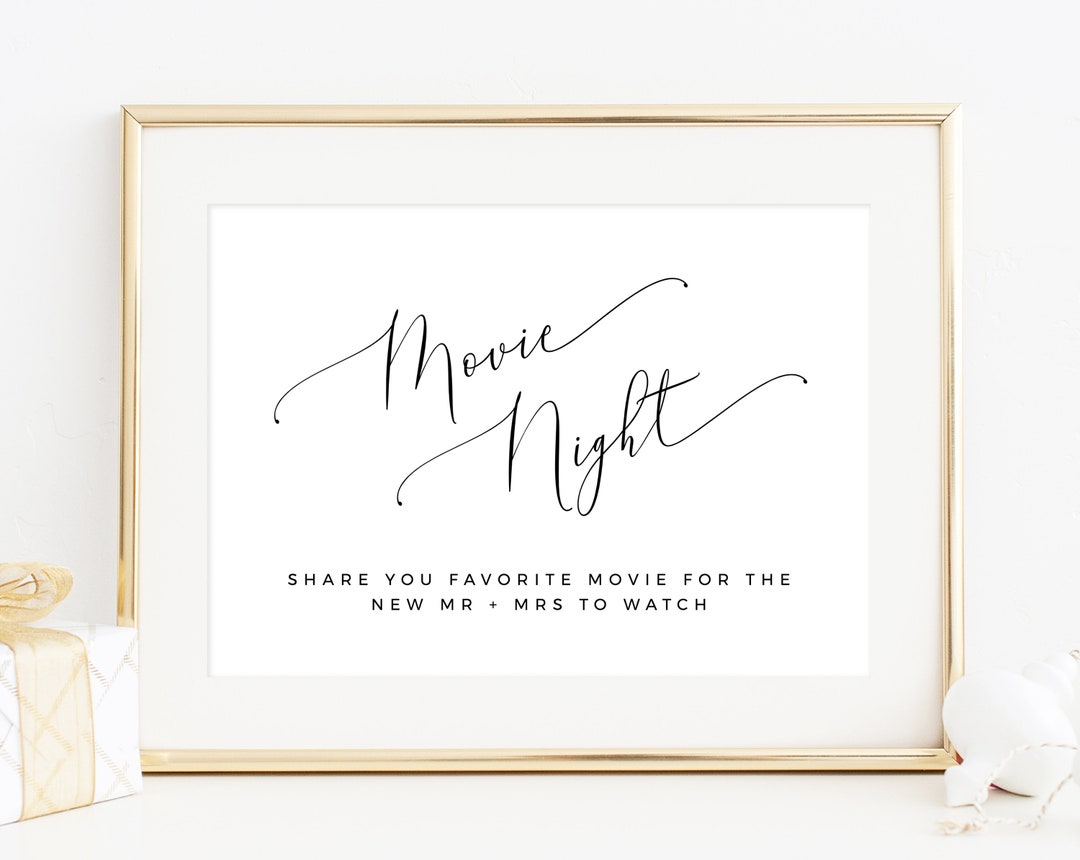 Movie
Night
SHARE YOU FAVORITE MOVIE FOR THE
NEW MR + MRS TO WATCH